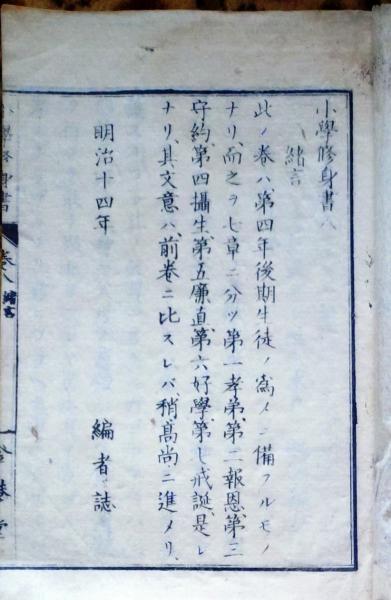 小學修身書八
緒言
此ノ卷ハ第四年後期生徒ノ爲メニ備フルモノ
ナリ、而之ヲ七章ニ分ツ第一孝弟、第二報恩、第三
守約、第四攝生、第五廉直、第六好學、第七戒誕、是レ
ナリ、其文意ハ前卷ニ比スレバ、稍高尚ニ進メリ、
明治十四年
編者誌
小學修身書
卷八
緒言